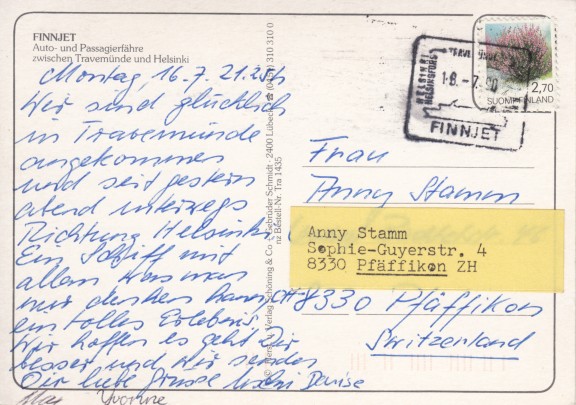 FINNJET
Auto- und Passagierfähre
zwischen Travemünde und Helsinki
Montag, 16.7. 21.35h
Wir sind glücklich
in Travemünde
angekommen
und seit gestern
abend unterwegs
Richtung Helsinki.
Ein Schiff mit
allem was man
nur denken kann,
ein tolles Erlebnis.
Wir hoffen es geht Dir
besser und wir senden
Dir liebe Grüsse Denise
Yvonne
Verlag Schöning & Co + Gebrüder Schmidt - 2400 Lübeck ☎ (0451) 310 310 0
Bestell-Nr. Tra 1435
HELSINKI
HELSINGFORS
TRAVEMÜNDE
FINNJET
2,70
SUOMI FINLAND
Frau
Anny Stamm
Anny Stamm
Sophie-Guyerstr. 4
8330 Pfäffikon ZH
CH 8330 Pfäffikon
Switzenland